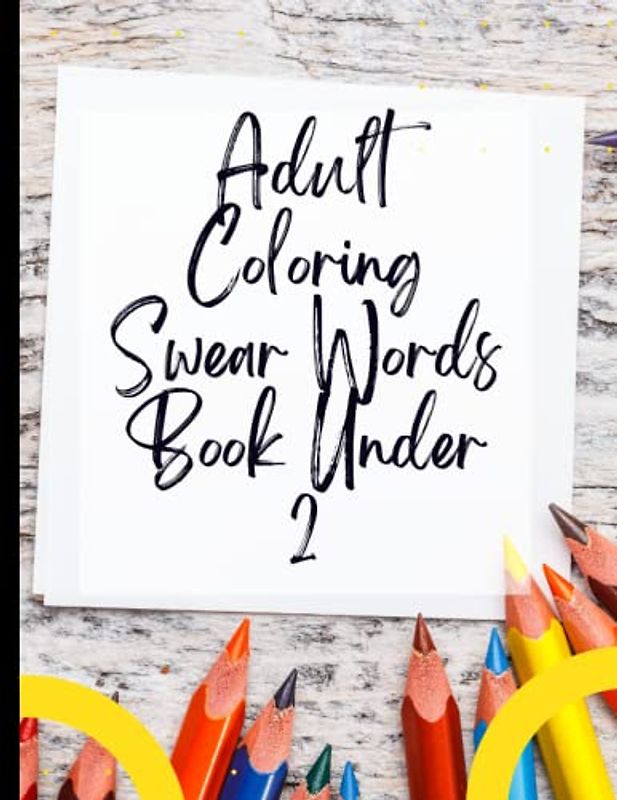 Adult
Coloring
Swear Words
Book Under
2